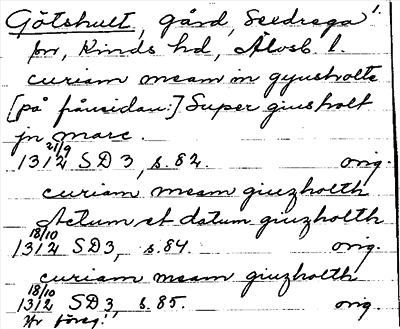 Götshult, gård, Seedrega 1.
sn, Kinds hd, Älvsb. l.
curiam meam in gyusholte
[på frånsidan:] Super giusholt
jn marc.
21/9
1312 SD 3, s. 82. orig.
curiam meam giuzholth
Actum et datum giuzholth
18/10
1312 SD3, s. 84. orig.
curiam meam giuzholth
18/10
1312 SD 3, s. 85. orig.